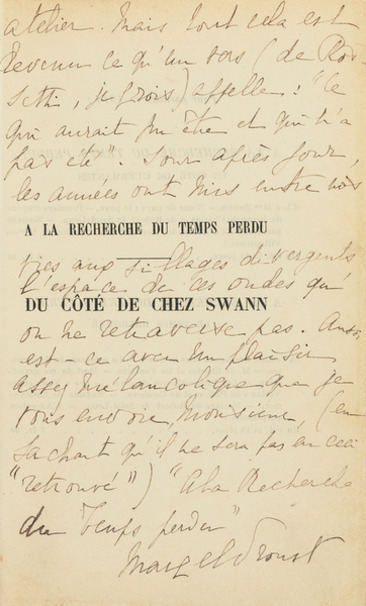 atelier. Mais tout cela est
devenu ce qu'un vers (de Ros-
setti, je crois) appelle : "Ce
qui aurait pu être et qui n'a
pas été". Jour après jour,
les années ont mis entre nos
A LA RECHERCHE DU TEMPS PERDU
vies aux sillages divergents
l'espace de ces ondes qu'
DU CÔTÉ DE CHEZ SWANN
on ne retraverse pas. Aussi
est-ce avec un plaisir
assez mélancolique que je
vous envoie, Monsieur, (en
sachant qu'il ne sera pas en ceci
"retrouvé") "A la Recherche
du Temps perdu"
Marcel Proust